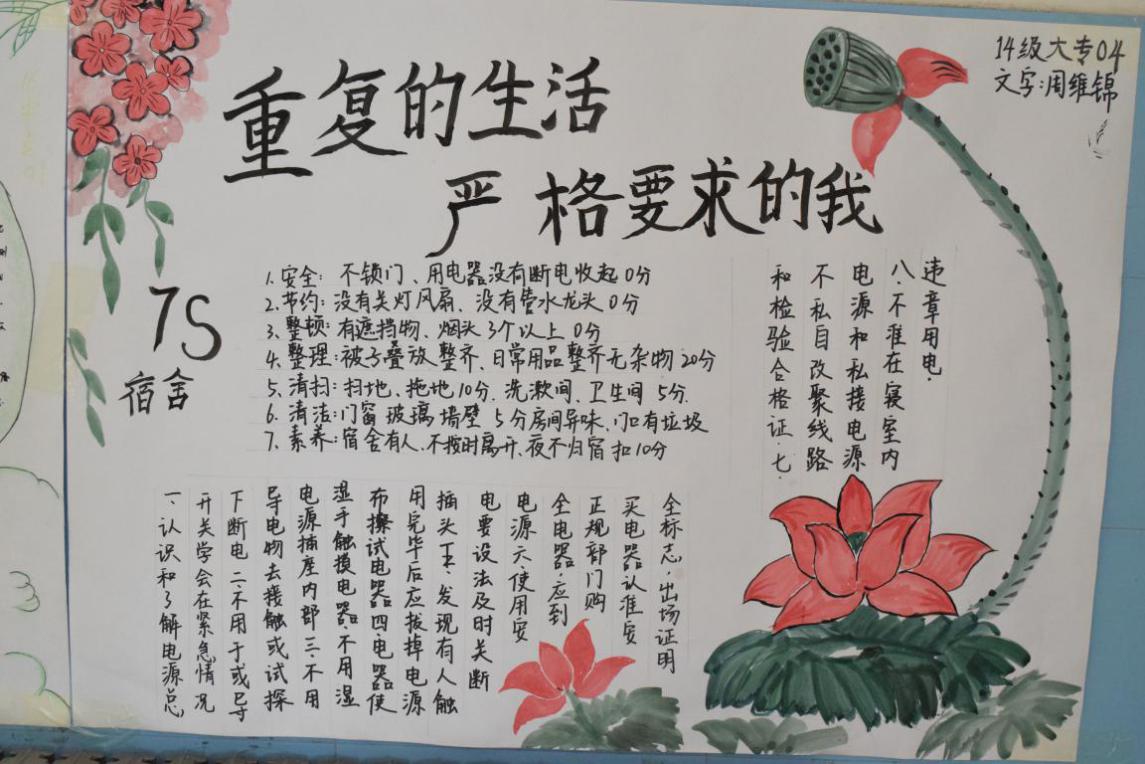 14级大专04
文字:周维锦
重复的生活
严格要求的我
7S
宿舍
1.安全: 不锁门、用电器没有断电收起0分
2.节约:没有关灯风扇、没有管水龙头0分
3.整顿:有遮挡物、烟头3个以上0分
4.整理:被子叠放整齐、日常用品整齐无杂物20分
5.清扫:扫地、拖地10分.洗漱间、卫生间5分.
6.清洁:门窗玻璃墙壁 5分房间异味,门口有垃圾
7.素养:宿舍有人,不按时离开、夜不归宿扣10分
一.认识和了解电源总
开关学会在紧急情况
下断电二.不用手或导
导电物去接触或试探
电源插座内部三.不用
湿手触摸电器.不用湿
布擦试电器四.电器使
用完毕后应拔掉电源
插头五.发现有人触
电要设法及时关断
电源六.使用安
全电器.应到
正规部门购
买电器认准安
全标志.出场证明
和检验合格证.七
不私自改聚线路
电源和私接电源
八.不准在寝室内
违章用电.